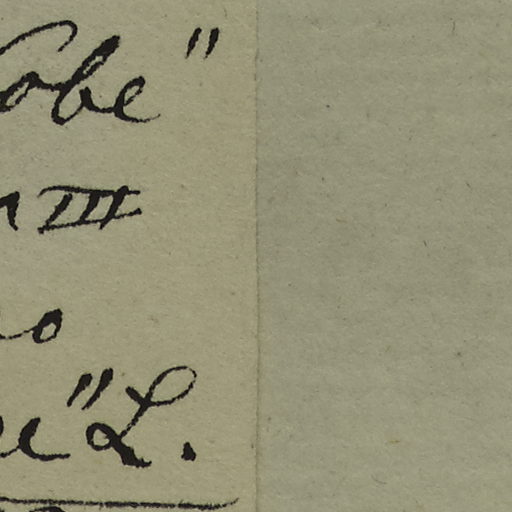 obe"
III
o
e" L.